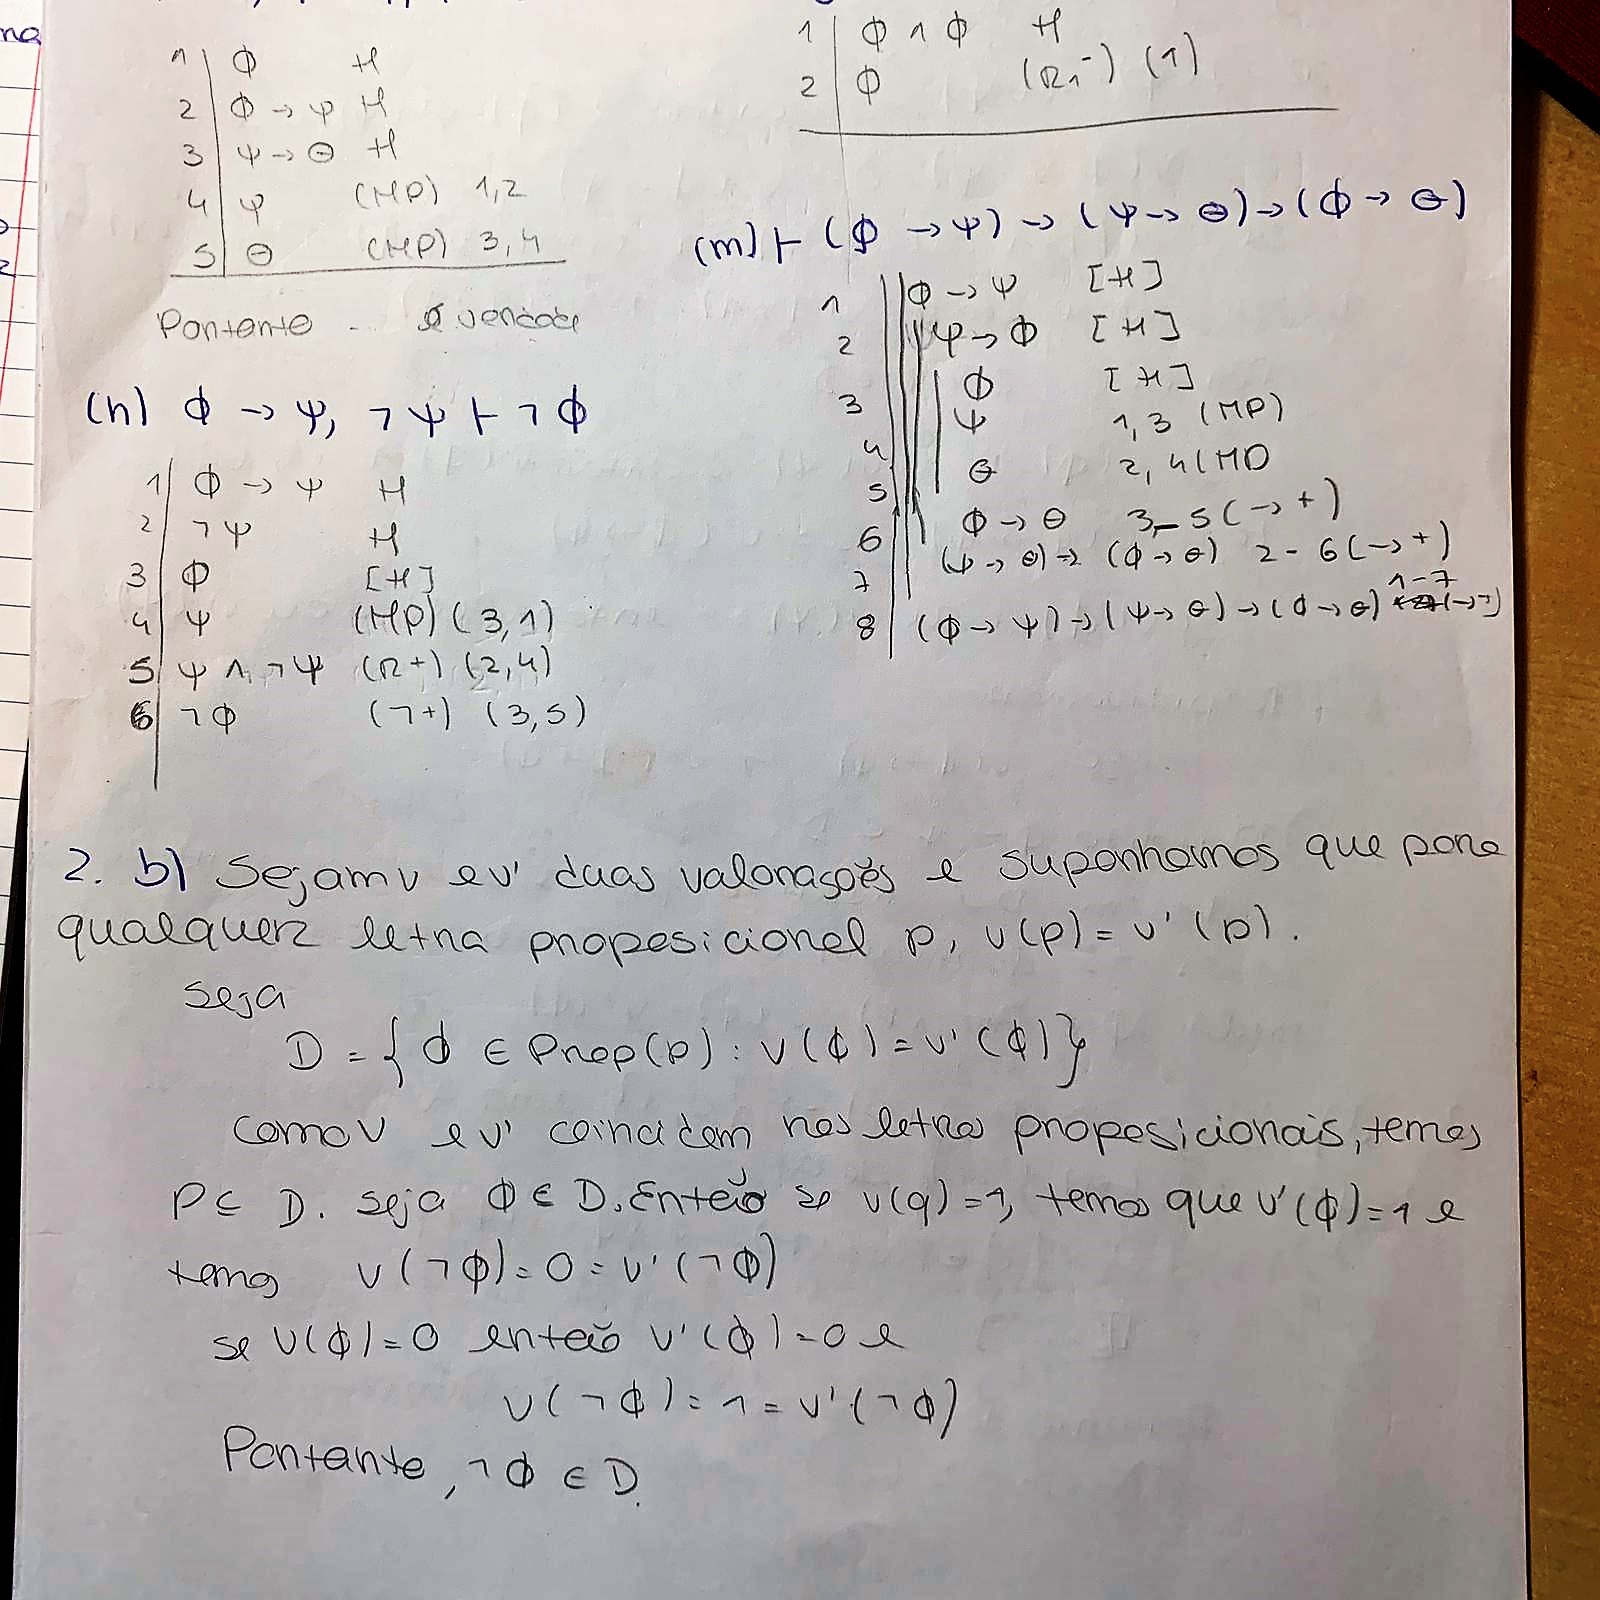 na
1 ϕ H
2 ϕ → ψ H
3 ψ → θ H
4 ψ (MP) 1,2
5 θ (MP) 3,4
Portanto é verdade
(h) ϕ → ψ, ¬ψ ⊢ ¬ϕ
1 ϕ → ψ H
2 ¬ψ H
3 ϕ [H]
4 ψ (MP) (3,1)
5 ψ ∧ ¬ψ (R+) (2,4)
6 ¬ϕ (¬+) (3,5)
1 ϕ ∧ ϕ H
2 ϕ (R∧⁻) (1)
(m) ⊢ (ϕ → ψ) → (ψ → θ) → (ϕ → θ)
1 ϕ → ψ [H]
2 ψ → ϕ [H]
3 ϕ [H]
4 ψ 1,3 (MP)
5 θ 2,4 (MP
6 ϕ → θ 3-5 (→+)
7 (ψ → θ) → (ϕ → θ) 2-6 (→+)
8 (ϕ → ψ) → (ψ → θ) → (ϕ → θ) 1-7 (→+)
2. b) Sejam v e v' duas valorações e suponhamos que para
qualquer letra proposicional p, v(p) = v'(p).
seja
D = {ϕ ∈ Prop(p) : v(ϕ) = v'(ϕ)}
como v e v' coincidem nas letras proposicionais, temos
P ⊆ D. seja ϕ ∈ D. Então se v(φ) = 1, temos que v'(ϕ) = 1 e
temos v(¬ϕ) = 0 = v'(¬ϕ)
se v(ϕ) = 0 então v'(ϕ) = 0 e
v(¬ϕ) = 1 = v'(¬ϕ)
Portanto, ¬ϕ ∈ D.